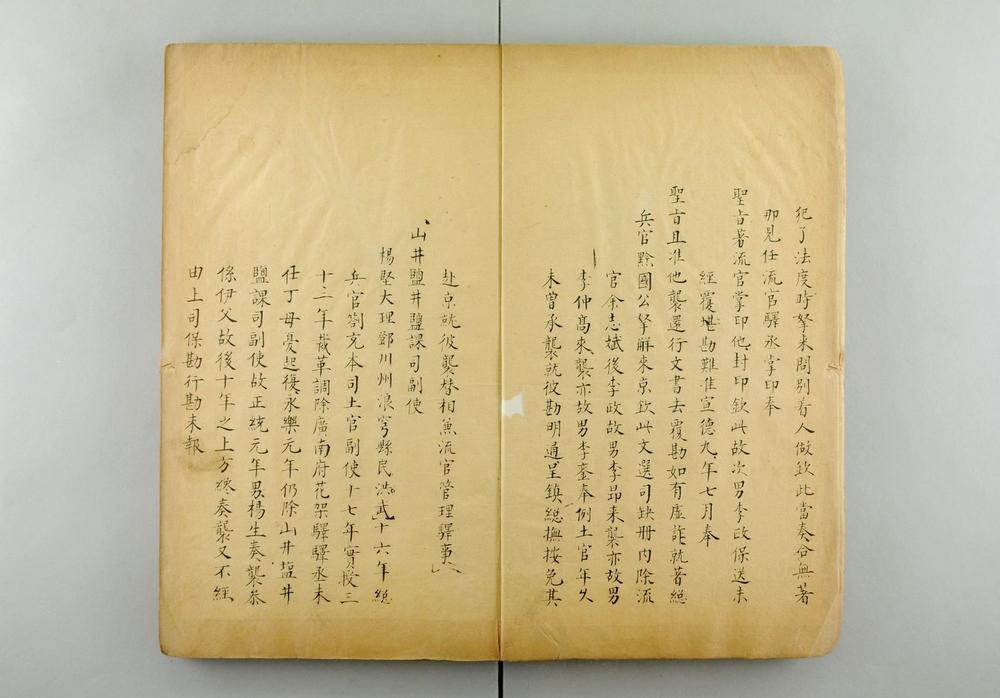 犯了法度時拏来問別着人做欽此當奏合無著
那見任流官驛丞掌印奉
聖旨著流官掌印他封印欽此故次男李政保送未
經覆堪勘難准宣德九年七月奉
聖旨且准他襲還行文書去覆勘如有虛詐就著總
兵官黔國公拏觧來京欽此文選司缺册内除流
官余志斌後李政故男李昻来襲亦故男
李仲髙來襲亦故男李銮奉例土官年乆
未曽承襲就彼勘明通呈鎮総撫按免其
赴京就彼襲替相兼流官管理驛事
山井鹽井鹽課司副使
楊堅大理鄧川州浪穹縣民洪武十六年総
兵官劄充本司土官副使十七年實授三
十二年裁革調除廣南府花架驛驛丞未
任丁母憂起復永樂元年仍除山井盐井
鹽課司副使故正統元年男楊生奏襲叅
係伊父故後十年之上方纔奏襲又不經
由上司保勘行勘未報